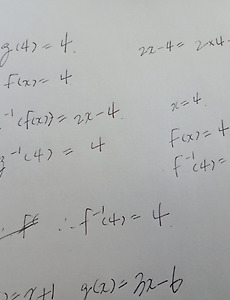 g(4) = 4.
2x-4 = 2×4-
f(x) = 4
⁻¹(f(x)) = 2x-4.
x=4.
⁻¹(4) = 4
f(x) = 4
f⁻¹(4) =
∴ f⁻¹(4) = 4.
= x+1 g(x) = 3x-6